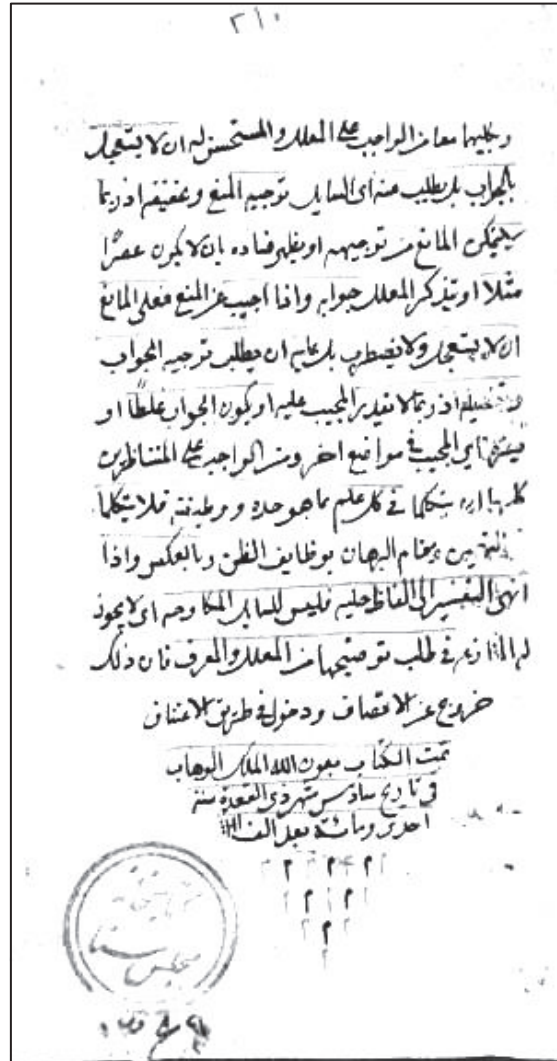 ٢١٠
معا من الواجب على المعلل والمستحسن له ان لا يستعجل
بالجواب بل يطلب عنه اى السايل توجيه المنع وتحقيقه اذ ربما
يتمكن المانع من توجيهه او يظهر فساده بان لا يكون مضرا
مثلا او يتذكر المعلل جوابه واذا اجيب عن المنع فعلى المانع
ان لا يستعجل ولا يضطرب بل عليه ان يطلب توجيه الجواب
اذ ربما لا يقدر المجيب عليه او يكون الجواب غلطا او
المجيب فى مواضع اخر ومن الواجب على المتناظرين
ان يتكلما فى كل علم بما هو حده ووظيفته فلا يتكلما
فى مقام البرهان بوظايف الظن وبالعكس واذا
انتهى التفسير الى الفاظ جلية فليس للسايل اى لا يجوز
له فى طلب توضيحها من المعلل والمعرف فان ذلك
خروج عن الانصاف ودخول فى طريق الاعتساف
تمت الكتاب بعون الله الملك الوهاب
فى تاريخ سادس شهر ذى القعدة سنة
احدى ومائة بعد الف
م م م م
م م م
م
مجلس